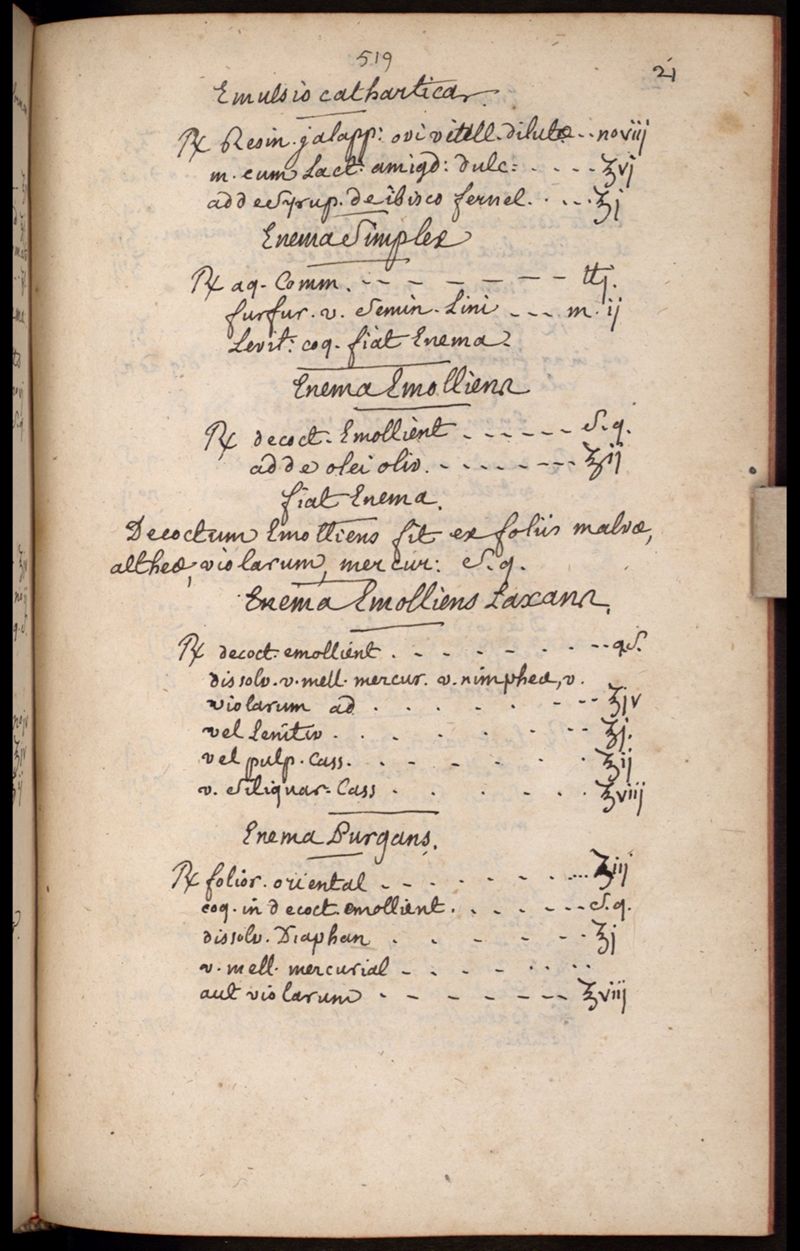 519
21
Emulsio cathartica.
℞ Resin. jalapp: ovi vitell. dilutæ - - no viij
m. cum Lact. amigd: dulc: - - - - ℥vj
adde Syrup. de ibisco fernel. - - - ℥j
Enema Simplex
℞ aq. Comm. - - - - - - - ℔j.
furfur. v. Semin. Lini - - - m. ij
Levit: coq. fiat Enema
Enema Emolliens
℞ decoct. Emollient - - - - - - S. q.
adde olei oliv. - - - - - - - - ℥ij
fiat Enema.
Decoctum Emolliens fit ex foliis malvæ,
altheæ, violarum, mercur: S. q.
Enema Emolliens Laxans.
℞ decoct. emollient . - - - - - - - - q S.
dissolv. v. mell. mercur. v. nimpheæ, v.
violarum ad . . . - . - - - ℥jv
vel Lenitiv . - . . - . - - ℥j.
vel pulp. Cass. - . - - - . . ℥ij
v. Siliquar. Cass . . . - . . ℥viij
Enema Purgans.
℞ folior. oriental - - - - - - - ... ℥iij
coq. in decoct. emollient . . - - - - - S. q.
dissolv. Diaphan . . - - - - . ℥j
v. mell. mercurial - - - - . . . .
aut violarum - - - - - - - - ℥viij